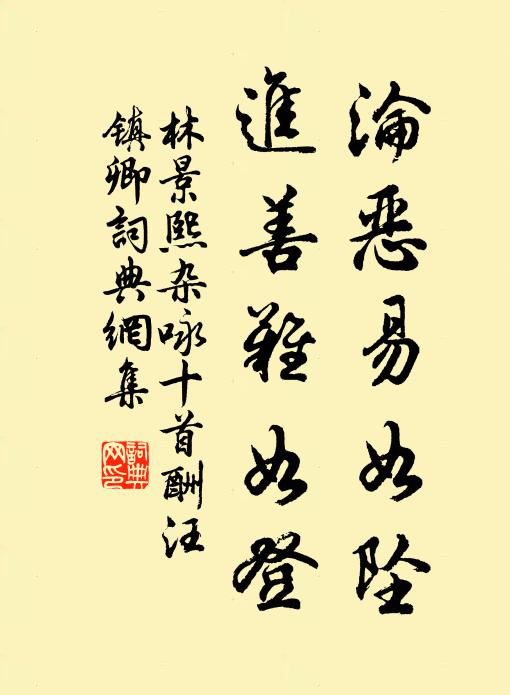 淪惡易如墜
進善難如登
林景熙杂咏十首酬汪
鎮卿詞典網集
詞典网印